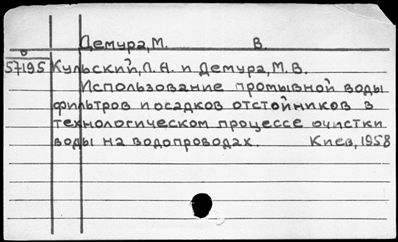 Демура, М. В.
57195 Кульский, Л. А. и Демура, М. В.
Использование промывной воды
фильтров и осадков отстойников в
технологическом процессе очистки
воды на водопроводах. Киев, 1958